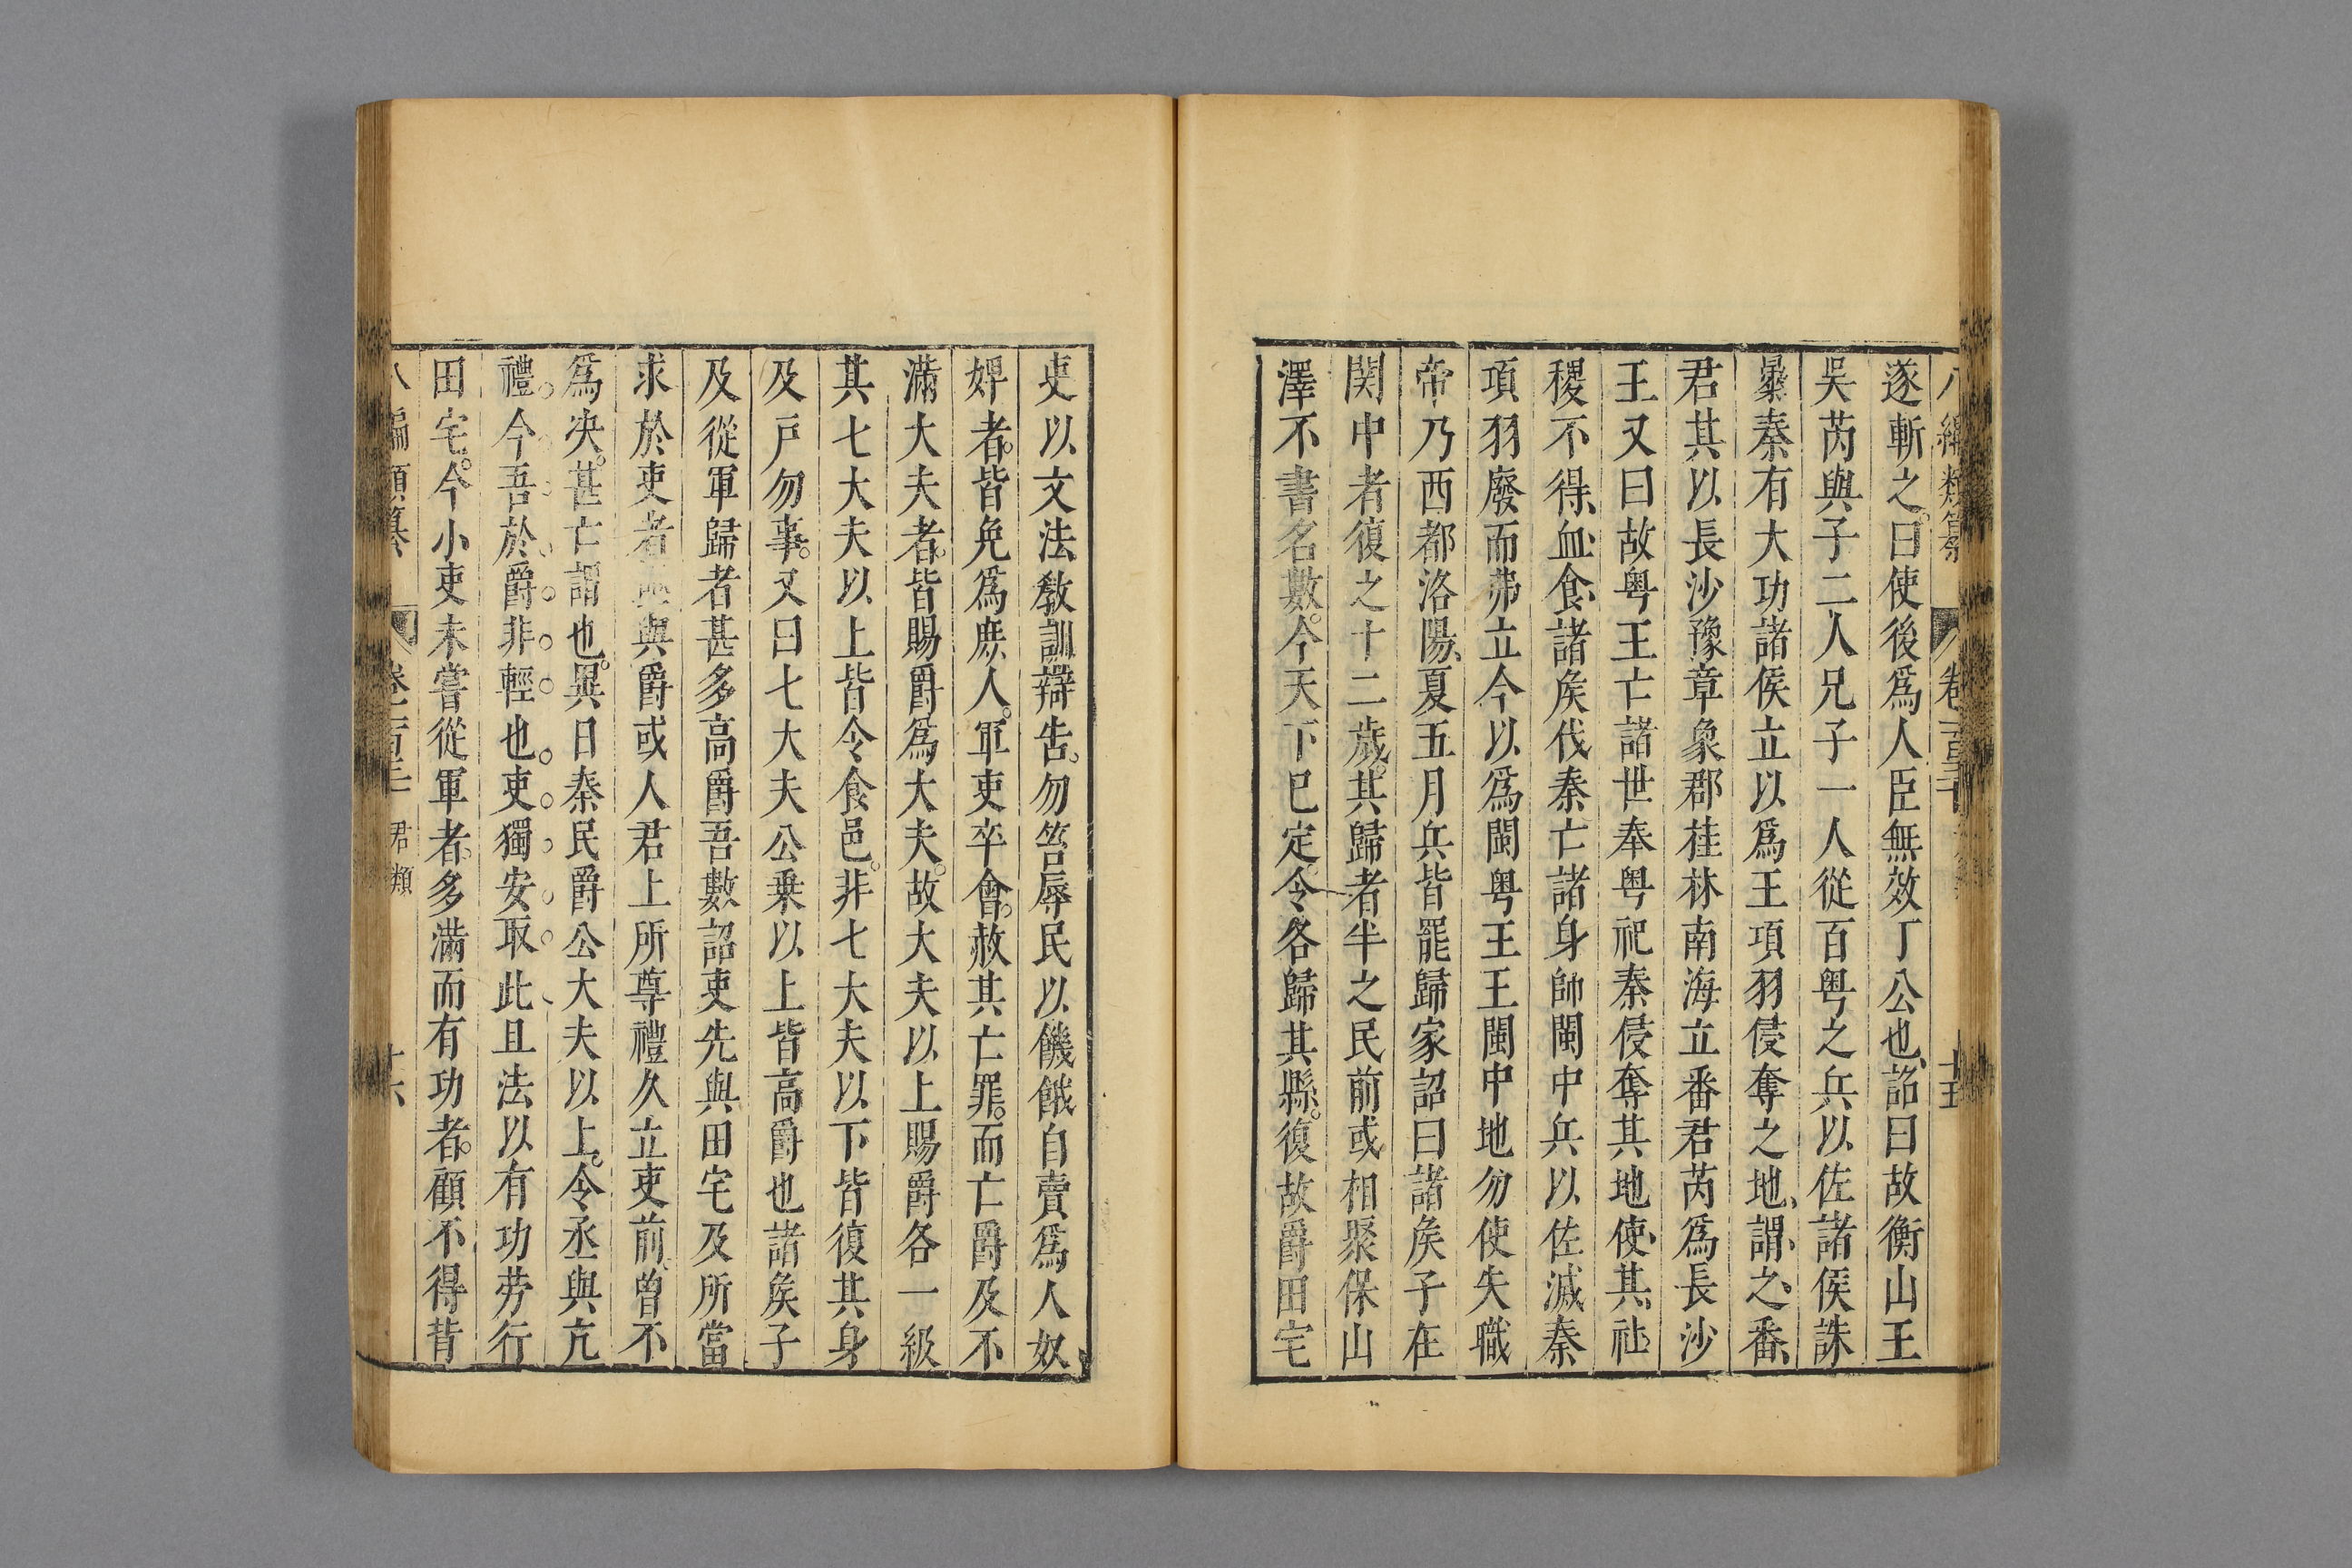 遂斬之。曰使後爲人臣無效丁公也、詔曰故衡山王
吳芮與子二人兄子一人從百粤之兵以佐諸侯誅
暴秦有大功諸侯立以爲王項羽侵奪之地、謂、之、番、
君其以長沙豫章象郡桂林南海立番君芮爲長沙
王又曰故粤王亡諸世奉粤祀秦侵奪其地使、其、社、
稷不得、血、食、諸矦伐秦亡諸身帥閩中兵以佐滅秦
項羽廢而弗立今以爲閩粤王王閩中地勿使失職
帝乃西都洛陽、夏五月兵皆罷歸家詔曰諸矦子在
関中者復之十二歲。其歸者半之民前或相聚保山
澤不書名數。今天下已定令各歸其縣。復故爵田宅
吏以文法教訓辯告。勿笞辱民以饑餓自賣爲人奴
婢者。皆免爲庶人。軍吏卒會。赦其亡罪。而亡爵及不
滿大夫者。皆賜爵爲大夫。故大夫以上賜爵各一級
其七大夫以上皆令食邑。非七大夫以下皆復其身
及戸勿事。又曰七大夫公乗以上皆高爵也諸矦子
及從軍歸者甚多高爵吾數詔吏先與田宅及所當
求於吏者亟與爵或人君上所尊禮久立吏前、曽不
爲決。甚亡謂也。異日秦民爵公大夫以上。令丞與亢
禮。今吾於爵非輕也。吏獨安取此且法以有功劳行
田宅。今小吏未嘗從軍者。多滿而有功者。顧不得昔
編類纂 卷 君類 十六